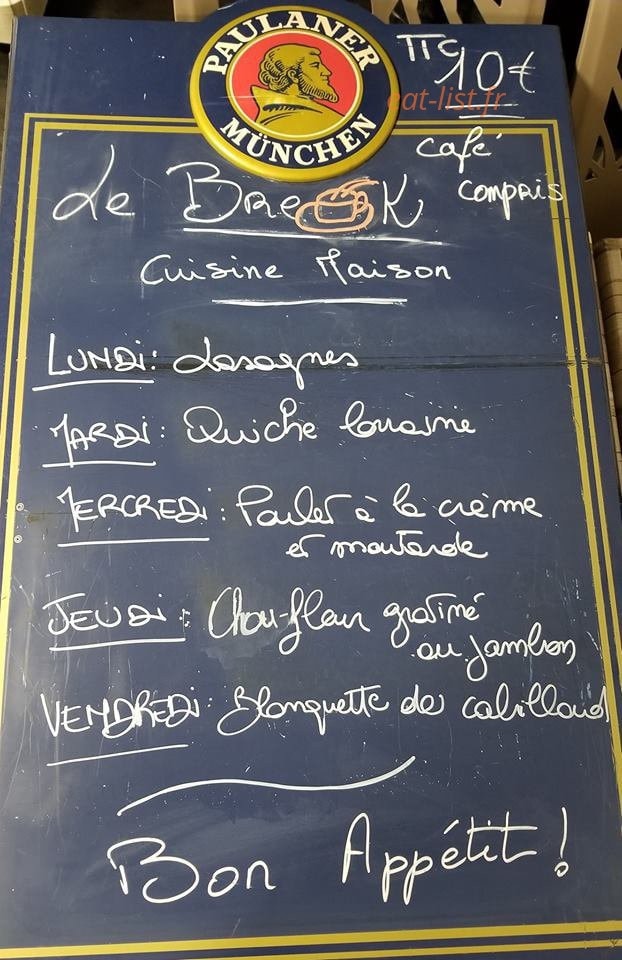 PAULANER
MÜNCHEN
TTC 10€
eat-list.fr
café
compris
Le Break
Cuisine Maison
LUNDi: Lasagnes
MARDi: Quiche lorraine
MERCREDi: Poulet à la crème
et moutarde
JEUDi: Chou-fleur gratiné
au jambon
VENDREDi: Blanquette de cabillaud
Bon Appétit!